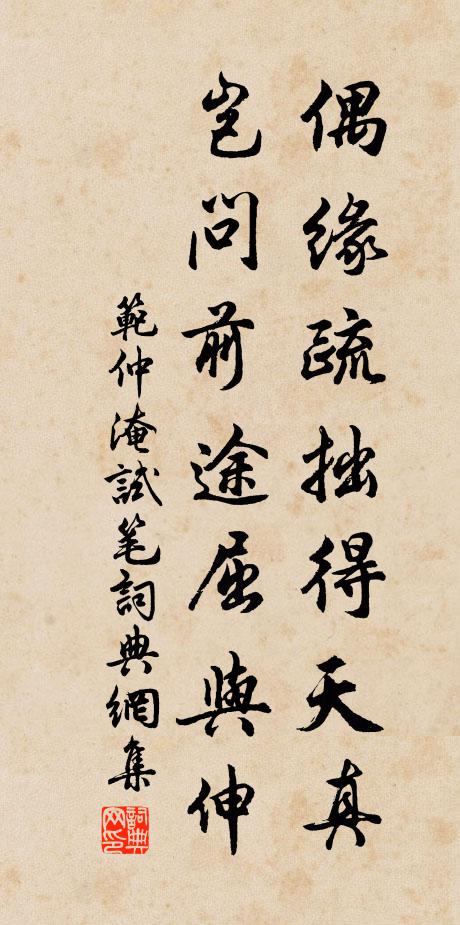 偶緣疏拙得天真
豈問前途屈與伸
範仲淹試笔詞典網集
詞典网印